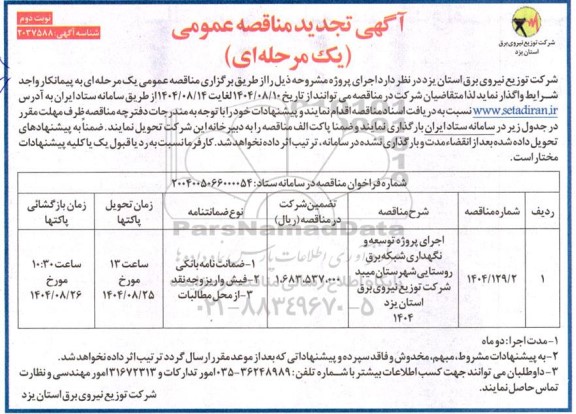 نوبت دوم
شناسه آگهی: ۲۰۳۷۵۸۸
آگهی تجدید مناقصه عمومی
(یک مرحله‌ای)
شرکت توزیع نیروی برق
استان یزد
شرکت توزیع نیروی برق استان یزد در نظر دارد اجرای پروژه مشروحه ذیل را از طریق برگزاری مناقصه عمومی یک مرحله‌ای به پیمانکار واجد
شرایط واگذار نماید لذا متقاضیان شرکت در مناقصه می توانند از تاریخ ۱۴۰۴/۰۸/۱۰ لغایت ۱۴۰۴/۰۸/۱۴ از طریق سامانه ستاد ایران به آدرس
www.setadiran.ir نسبت به دریافت اسناد مناقصه اقدام نمایند و پیشنهادات خود را با توجه به مندرجات دفترچه مناقصه ظرف مهلت مقرر
در جدول زیر در سامانه ستاد ایران بارگذاری نمایند و ضمنا پاکت الف مناقصه را به دبیرخانه این شرکت تحویل نمایند. ضمناً به پیشنهادهای
تحویل داده شده بعد از انقضاء مدت و بارگذاری نشده در سامانه، ترتیب اثر داده نخواهد شد. کارفرما نسبت به رد یا قبول یک یا کلیه پیشنهادات
مختار است.
شماره فراخوان مناقصه در سامانه ستاد: ۲۰۰۴۰۰۵۰۶۶۰۰۰۰۵۴
ردیف
شماره مناقصه
شرح مناقصه
تضمین شرکت
در مناقصه (ریال)
نوع ضمانتنامه
زمان تحویل
پاکتها
زمان بازگشائی
پاکتها
۱
۱۴۰۴/۱۲۹/۲
اجرای پروژه توسعه و
نگهداری شبکه برق
روستایی شهرستان میبد
شرکت توزیع نیروی برق
استان یزد
۱۴۰۴
۱.۶۸۳.۵۳۷.۰۰۰
۱-ضمانت نامه بانکی
۲-فیش واریز وجه نقد
۳-از محل مطالبات
ساعت ۱۳
مورخ
۱۴۰۴/۰۸/۲۵
ساعت ۱۰:۳۰
مورخ
۱۴۰۴/۰۸/۲۶
ParsNamadData
۰۲۱-۸۸۳۴۹۶۷۰-۵
۱-مدت اجرا: دو ماه
۲-به پیشنهادات مشروط، مبهم، مخدوش و فاقد سپرده و پیشنهاداتی که بعد از موعد مقرر ارسال گردد ترتیب اثر داده نخواهد شد.
۳-داوطلبان می توانند جهت کسب اطلاعات بیشتر با شماره تلفن: ۳۶۲۴۸۹۸۹-۰۳۵ امور تدارکات و ۳۱۶۷۲۳۱۳ امور مهندسی و نظارت
تماس حاصل نمایند.
شرکت توزیع نیروی برق استان یزد